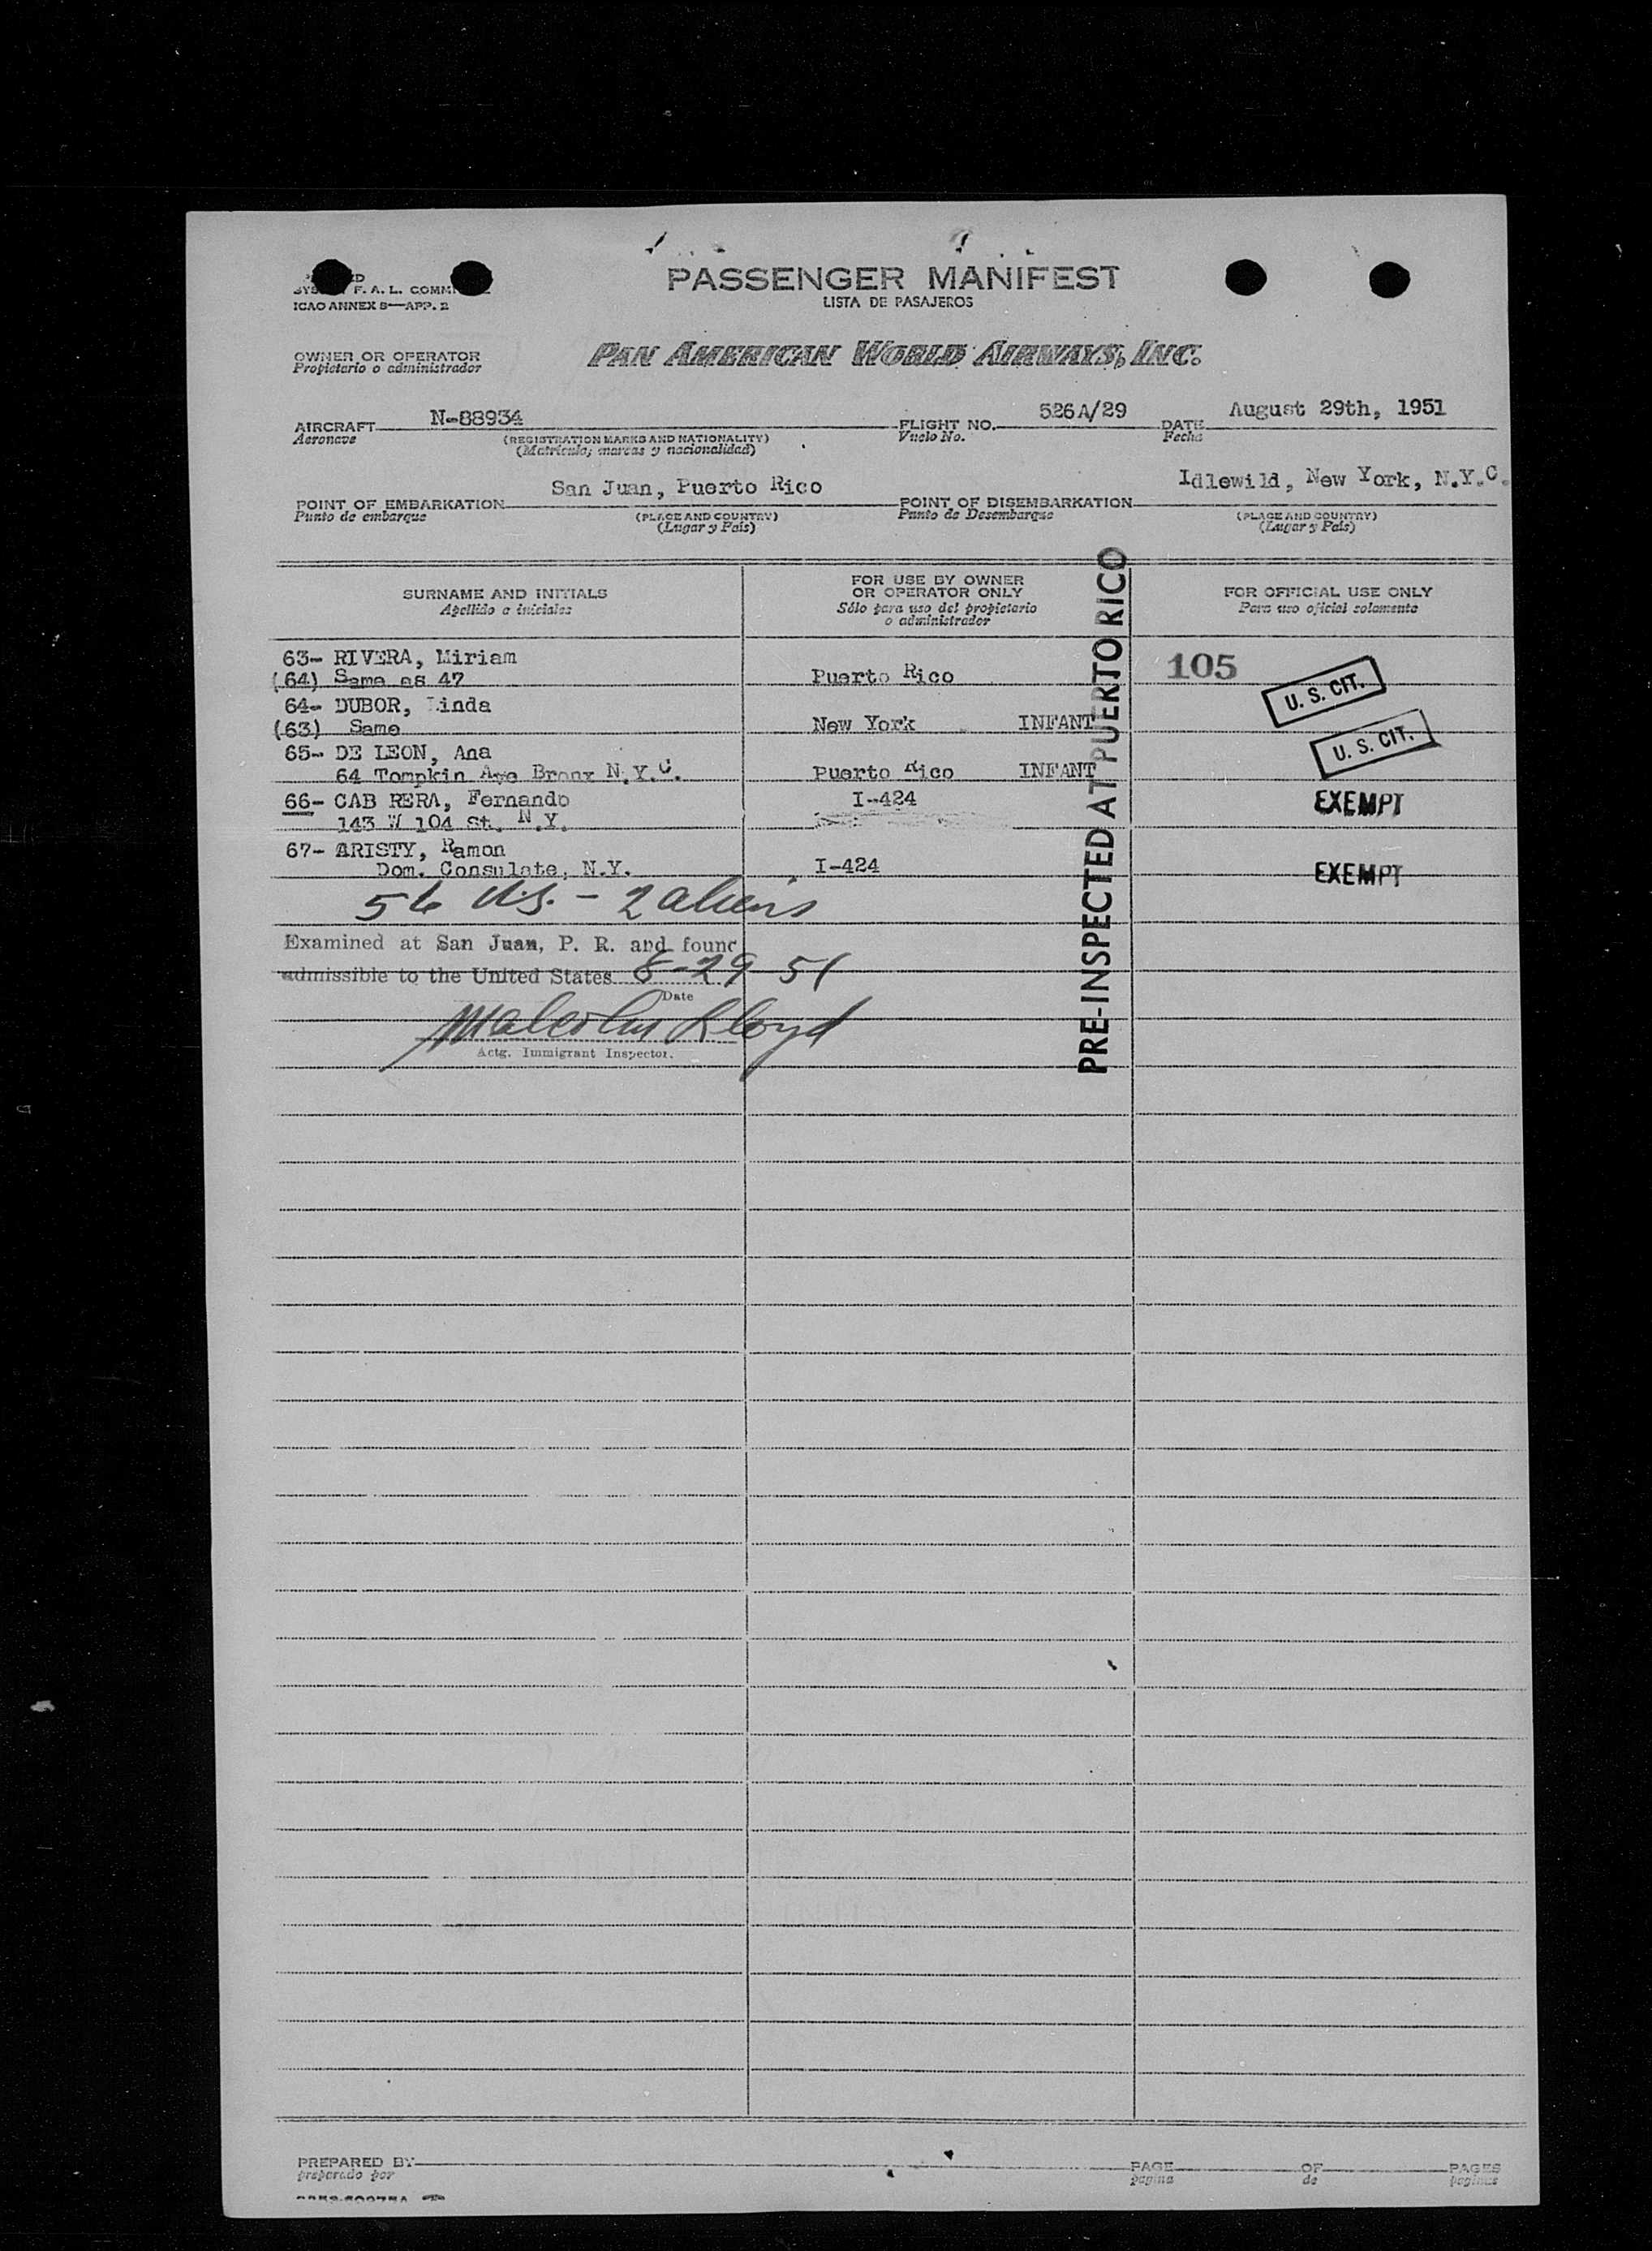 PASSENGER MANIFEST
LISTA DE PASAJEROS
F. A. L. COMM
ICAO ANNEX 8—APP. 2
OWNER OR OPERATOR
Propietario o administrador
PAN AMERICAN WORLD AIRWAYS, INC.
AIRCRAFT N-88934 FLIGHT NO. 526A/29 DATE August 29th, 1951
Aeronave (REGISTRATION MARKS AND NATIONALITY) Vuelo No. Fecha
(Matrícula, marcas y nacionalidad)
POINT OF EMBARKATION San Juan, Puerto Rico POINT OF DISEMBARKATION Idlewild, New York, N.Y.C.
Punto de embarque (PLACE AND COUNTRY) Punto de Desembarque (PLACE AND COUNTRY)
(Lugar y País) (Lugar y País)
SURNAME AND INITIALS
Apellido e iniciales
FOR USE BY OWNER
OR OPERATOR ONLY
Sólo para uso del propietario
o administrador
FOR OFFICIAL USE ONLY
Para uso oficial solamente
63- RIVERA, Miriam
(64) Same as 47 Puerto Rico 105 U. S. CIT.
64- DUBOR, Linda
(63) Same New York INFANT U. S. CIT.
65- DE LEON, Ana
64 Tompkin Ave Bronx N.Y.C. Puerto Rico INFANT
66- CAB RERA, Fernando I-424 EXEMPT
143 W 104 St. N.Y.
67- ARISTY, Ramon
Dom. Consulate, N.Y. I-424 EXEMPT
PRE-INSPECTED AT PUERTO RICO
56 U.S. - 2 aliens
Examined at San Juan, P. R. and found
admissible to the United States 8-29 51
Date
Malcolm Lloyd
Actg. Immigrant Inspector.
PREPARED BY PAGE OF PAGES
preparado por página de páginas